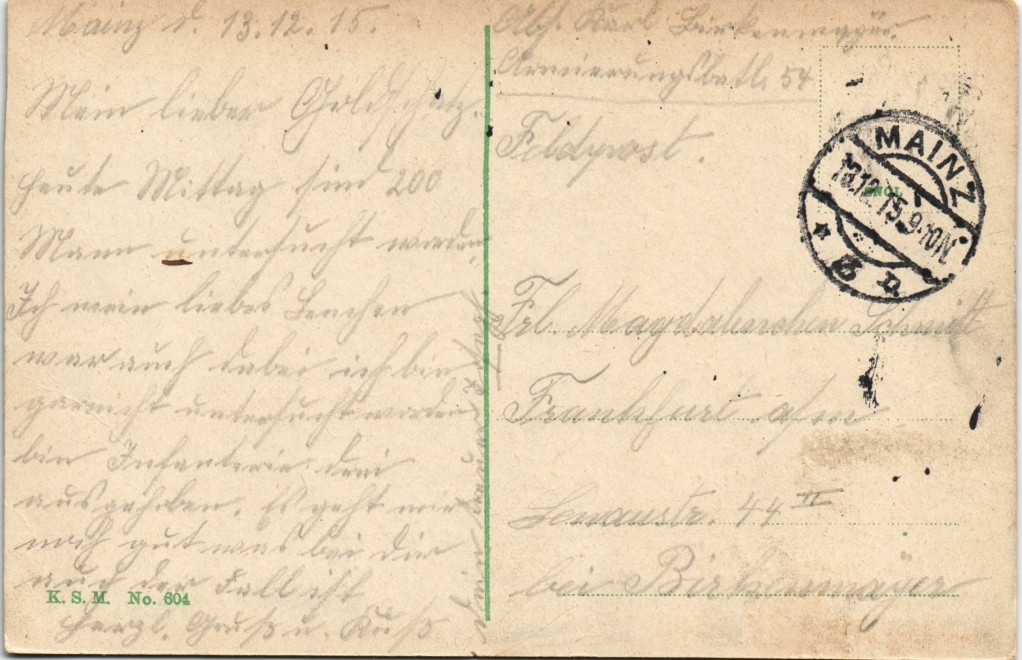 Mainz d. 13.12.15.
Mein lieber Goldschatz.
heute Mittag sind 200
Mann untersucht worden,
Ich mein liebes Lenchen
war auch dabei ich bin
garnicht untersucht worden
bin Infanterie drei
ausgehoben. Es geht mir
noch gut was bei dir
auch der Fall ist
Herzl. Gruß u. Kuß
K. S. M. No. 604
Abs. Karl Birkenmayer.
Armierungsbatl. 54
Feldpost.
MAINZ
13.12.15.9-10N.
Frl. Magdalenchen Schmitt
Frankfurt a/m
Lenaustr. 44 II
bei Birkenmayer